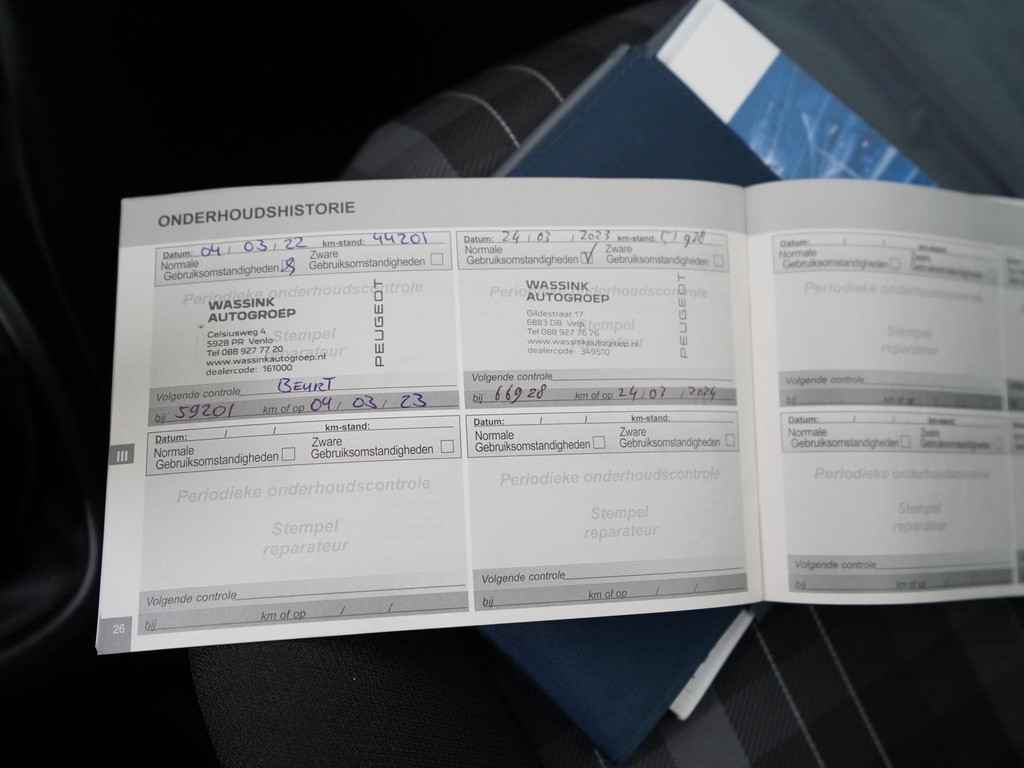 ONDERHOUDSHISTORIE
Datum: 04 / 03 / 22 km-stand: 44201
Normale Gebruiksomstandigheden
Zware Gebruiksomstandigheden
Periodieke onderhoudscontrole
WASSINK
AUTOGROEP
PEUGEOT
Celsiusweg 4
5928 PR Venlo
Tel 088 927 77 20
www.wassinkautogroep.nl
dealercode: 161000
Stempel
reparateur
Volgende controle BEURT
bij 59201 km of op 04 / 03 / 23
Datum: 24 / 03 / 2023 km-stand:
Normale Gebruiksomstandigheden
Zware Gebruiksomstandigheden
Periodieke onderhoudscontrole
WASSINK
AUTOGROEP
PEUGEOT
Gildestraat 17
6883 DB Velp
Tel 088 927 76 76
www.wassinkautogroep.nl
dealercode: 349510
Stempel
Volgende controle
bij 66928 km of op 24 / 03 / 2024
Datum: / /
Normale Gebruiksomstandigheden
Periodieke onderhoudscontrole
Stempel
reparateur
Volgende controle
bij km of op / /
III
Datum: / / km-stand:
Normale Gebruiksomstandigheden
Zware Gebruiksomstandigheden
Periodieke onderhoudscontrole
Stempel
reparateur
Volgende controle
bij km of op / /
Datum: / / km-stand:
Normale Gebruiksomstandigheden
Zware Gebruiksomstandigheden
Periodieke onderhoudscontrole
Stempel
reparateur
Volgende controle
bij km of op / /
Datum: / /
Normale Gebruiksomstandigheden
Periodieke onderhoudscontrole
Stempel
reparateur
Volgende controle
bij km of op / /
26